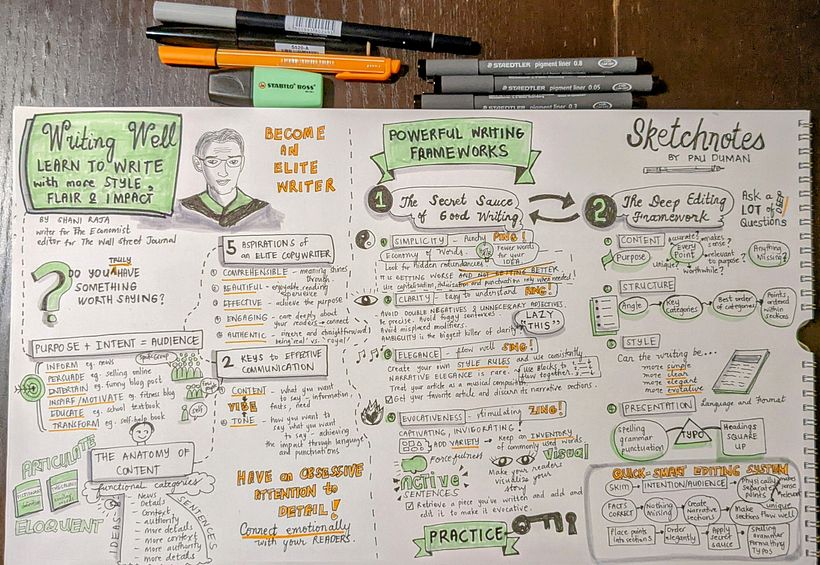 STABILO BOSS
STAEDTLER pigment liner 0.8
STAEDTLER pigment liner 0.05
STAEDTLER pigment liner 0.3
Writing Well
LEARN TO WRITE
with more STYLE,
FLAIR & IMPACT
BY SHANI RAJA
writer for The Economist
editor for The Wall Street Journal
BECOME
AN
ELITE
WRITER
? DO YOU TRULY HAVE
SOMETHING
WORTH SAYING?
PURPOSE + INTENT = AUDIENCE
INFORM eg. news
PERSUADE eg. selling online
ENTERTAIN eg. funny blog post
INSPIRE/MOTIVATE eg. fitness blog
EDUCATE eg. school textbook
TRANSFORM eg. self-help book
self
ARTICULATE
ELOQUENT
THE ANATOMY OF
CONTENT
functional categories
IDEAS
SENTENCES
- News
- Details
- Context
- authority
- more details
- more context
- more authority
- more details
5 ASPIRATIONS of
an ELITE COPYWRITER
COMPREHENSIBLE - meaning shines
through
BEAUTIFUL - enjoyable reading
experience
EFFECTIVE - achieve the purpose
ENGAGING - care deeply about
your readers + connect
AUTHENTIC - sincere and straightforward
being real vs. royal
2 KEYS to EFFECTIVE
COMMUNICATION
CONTENT - what you want
to say - information,
facts, need
VIBE
TONE - how you want to
say what you want
to say - achieving
the impact through language
and punctuations
HAVE an OBSESSIVE
ATTENTION to
DETAIL!
Connect emotionally
with your READERS.
POWERFUL WRITING
FRAMEWORKS
1 The Secret Sauce
of Good Writing
SIMPLICITY - Punchy PING!
Economy of Words - Fewer words for your IDEA
Look for hidden redundancies
IS GETTING WORSE AND NOT GETTING BETTER
Use capitalisation, italicisation and punctuation only when needed!
CLARITY - easy to understand RING!
AVOID DOUBLE NEGATIVES & UNNECESSARY ADJECTIVES.
Be precise. Avoid foggy sentences
Avoid misplaced modifiers
AMBIGUITY is the biggest killer of clarity
LAZY
"THIS"
ELEGANCE - flow well SING!
Create your own STYLE RULES and use consistently
NARRATIVE ELEGANCE is rare - use blocks to flow together
Treat your article as a musical composition
Get your favorite article and discern its narrative sections.
EVOCATIVENESS - stimulating ZING!
CAPTIVATING, INVIGORATING
ADD VARIETY
Keep an INVENTORY
of commonly used words
Forcefulness
Visual
Make your readers
visualize your
story
Active
SENTENCES
Retrieve a piece you've written and add and
edit it to make it evocative.
PRACTICE
Sketchnotes
BY PAU DUMAN
2 The Deep Editing
Framework
Ask a
LOT of DEEP
Questions
CONTENT accurate? makes sense?
Purpose
Every
Point
Anything
Missing?
unique?
relevant to purpose?
worthwhile?
STRUCTURE
Angle
Key
categories
Best order of
categories
Points
ordered
within
sections
STYLE
Can the writing be...
more simple
more clear
more elegant
more evocative
PRESENTATION Language and Format
Spelling
grammar
punctuation
TYPO
Headings
SQUARE
UP
QUICK-SMART EDITING SYSTEM
SKIM
INTENTION/AUDIENCE
Physically
separate
points
makes
sense
relevant
unique
FACTS
CORRECT
Nothing
Missing
Create
narrative
sections
Make
sections
flow well
Place points
into sections
Order
elegantly
Apply
secret
sauce
Spelling
grammar
formatting
TYPOS